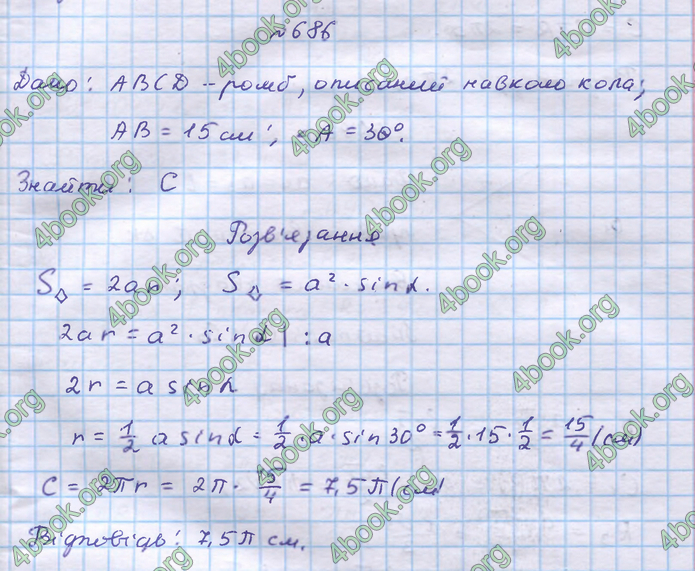 №686
Дано: ABCD – ромб, описаний навколо кола;
AB = 15 см; ∠A = 30°.
Знайти: C
Розв'язання
S◇ = 2ar; S◇ = a² · sin α.
2ar = a² · sin α | : a
2r = a sin α
r = 1/2 a sin α = 1/2 · a · sin 30° = 1/2 · 15 · 1/2 = 15/4 (см)
C = 2πr = 2π · 15/4 = 7,5π (см)
Відповідь: 7,5π см.
4book.org